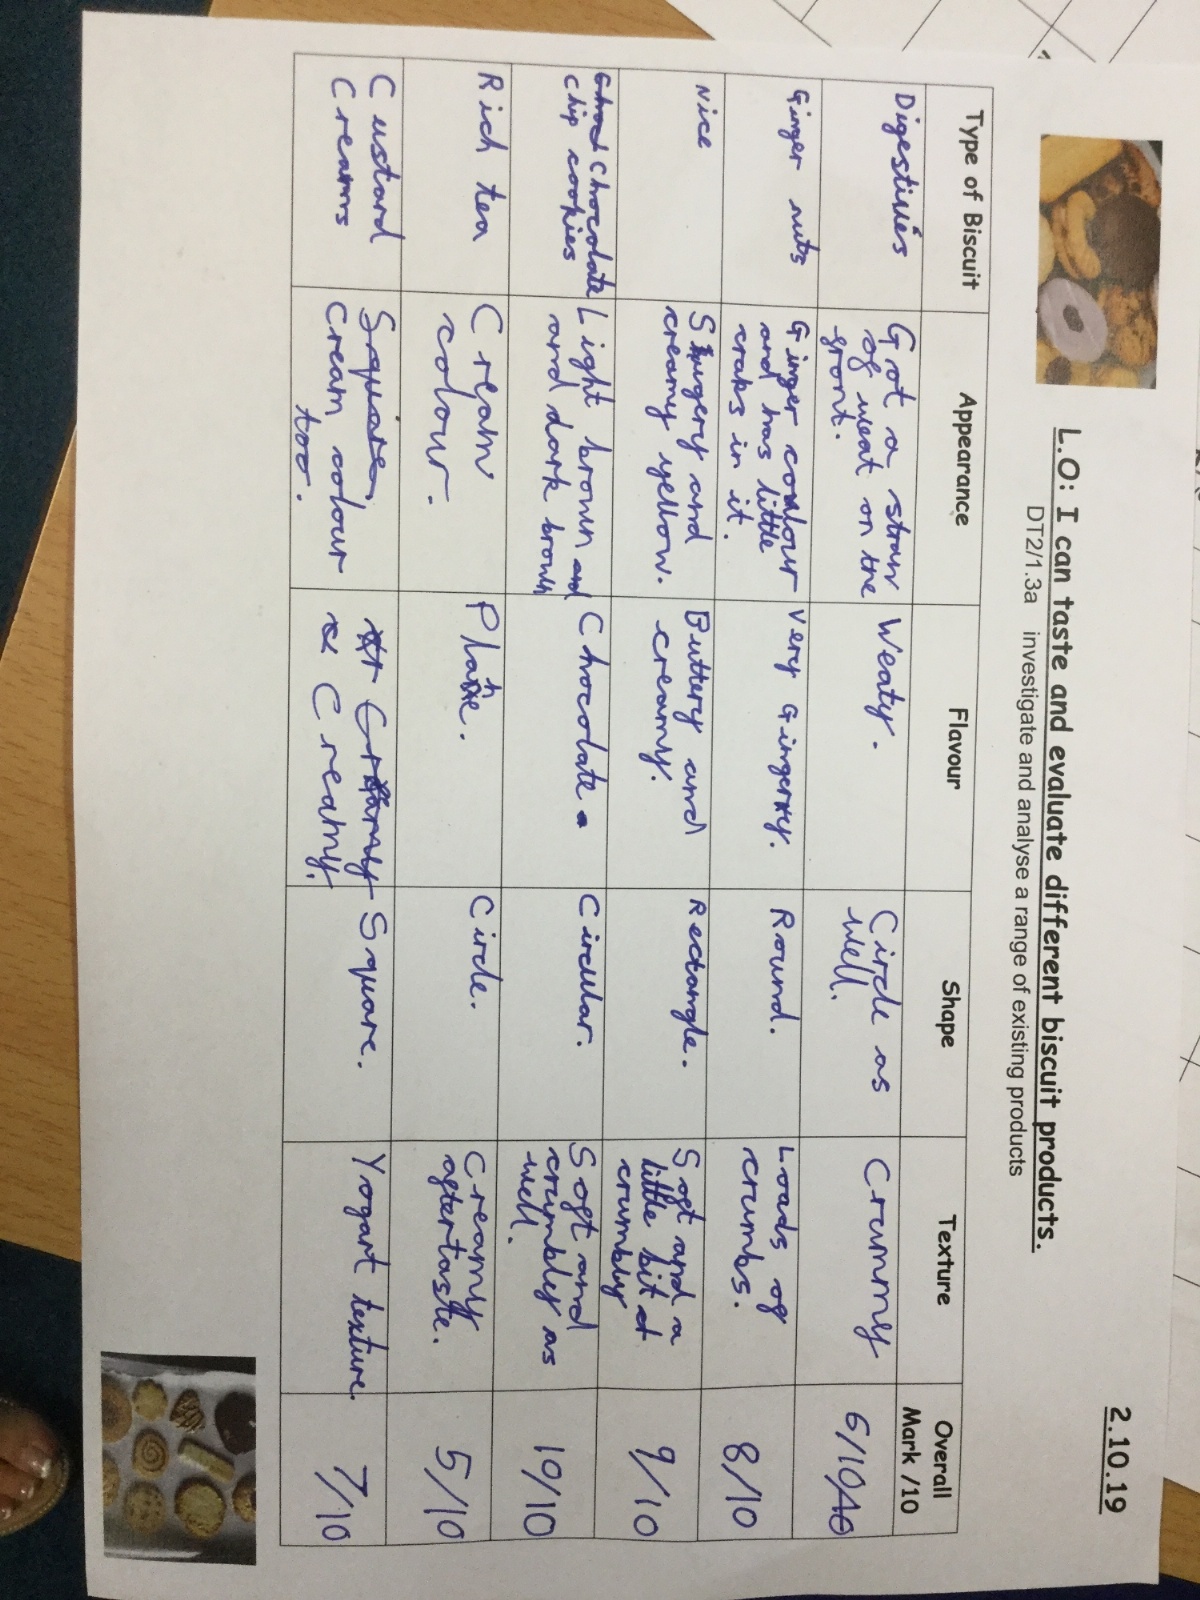 2.10.19
L.O: I can taste and evaluate different biscuit products.
DT2/1.3a investigate and analyse a range of existing products
Type of Biscuit
Appearance
Flavour
Shape
Texture
Overall
Mark /10
Digestives
Got a straw
of weat on the
front.
Weaty.
Circle as
well.
Crummy
6/10
Ginger nuts
Ginger colour
and has little
craks in it.
Very Gingery.
Round.
Loads of
crumbs.
8/10
Nice
Shugery and
creamy yellow.
Buttery and
creamy.
Rectangle.
Soft and a
little bit of
crumbly
9/10
Chocolate
chip cookies
Light brown and
and dark brown
Chocolate.
Circular.
Soft and
crumbly as
well.
10/10
Rich tea
Cream
colour.
Plain.
Circle.
Creamy
aftertaste.
5/10
Custard
Creams
Square.
Cream colour
too.
Creamy.
Square.
Yogart texture.
7/10